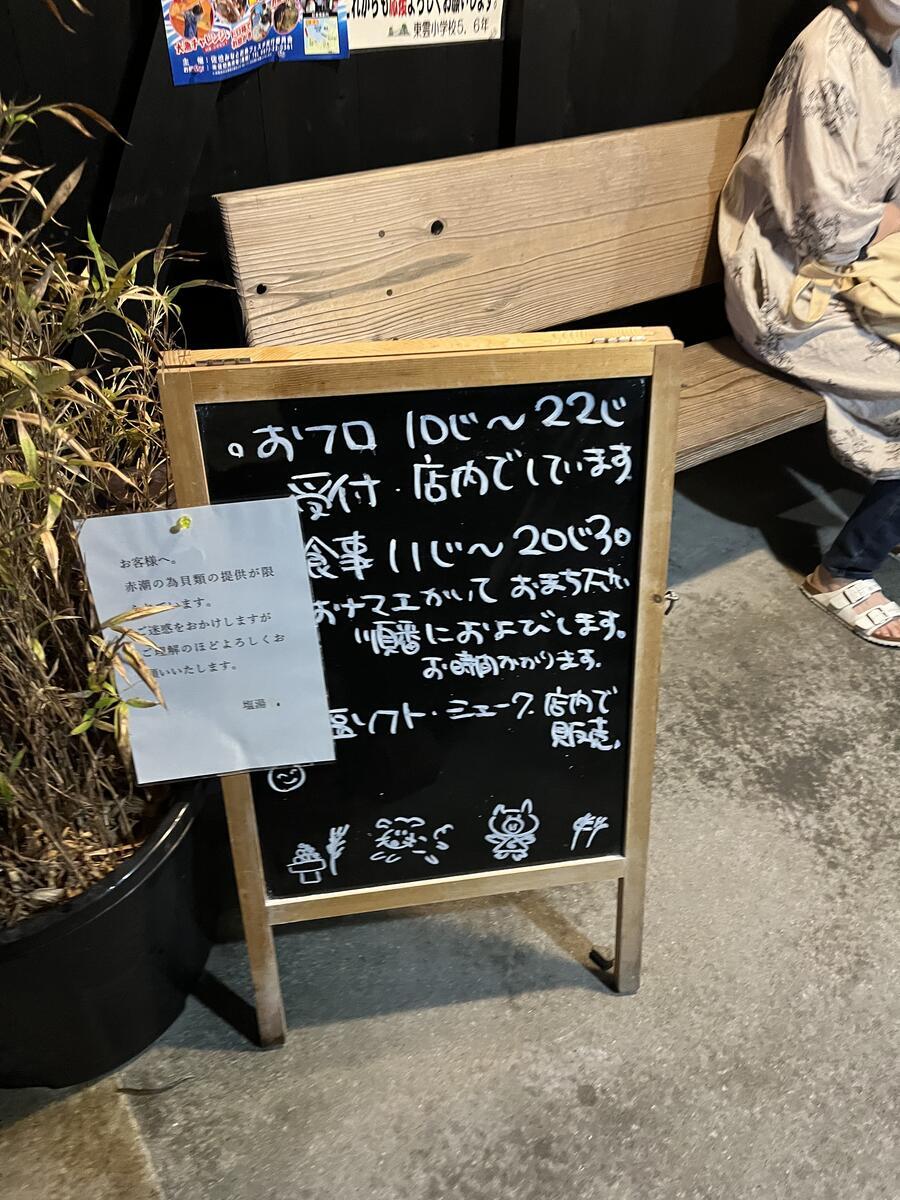 れからも応援よろしくお願いします。
東雲小学校5,6年
大漁チャレンジ
お客様へ。
赤潮の為貝類の提供が限
います。
ご迷惑をおかけしますが
ご理解のほどよろしくお
願いいたします。
塩湯
。おフロ 10じ〜22じ
受付・店内でしています
食事 11じ〜20じ30
おナマエかいて おまち下さい
順番におよびします。
お時間かかります。
塩ソフト・シェーク 店内で
販売。